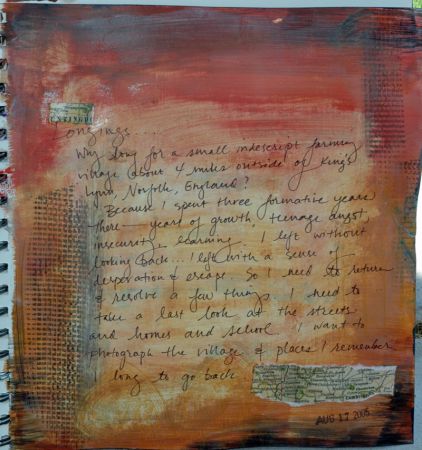 NTINGD
Longings...
Why long for a small indescript farming
village (about 4 miles outside of King's
Lynn, Norfolk, England?
Because I spent three formative years
there — years of growth, teenage angst,
insecurity, learning. I left without
looking back... I left with a sense of
desperation & escape. So I need to return
& resolve a few things. I need to
take a last look at the streets
and homes and school. I want to
photograph the village & places I remember
long to go back.
AUG 17 2005